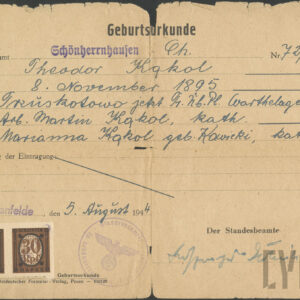 Geburtsurkunde
amt Schönherrnhausen Ch. Nr. 72
Theodor Kąkol
8. November 1895
Truskotowo jetzt G. Üb. Pl. Warthelager
Arb. Martin Kąkol, kath.
Marianna Kąkol geb.
der Eintragung:
30
nfelde den 5. August 1944
Der Standesbeamte
Geburtsurkunde
Verlag, Posen
LY